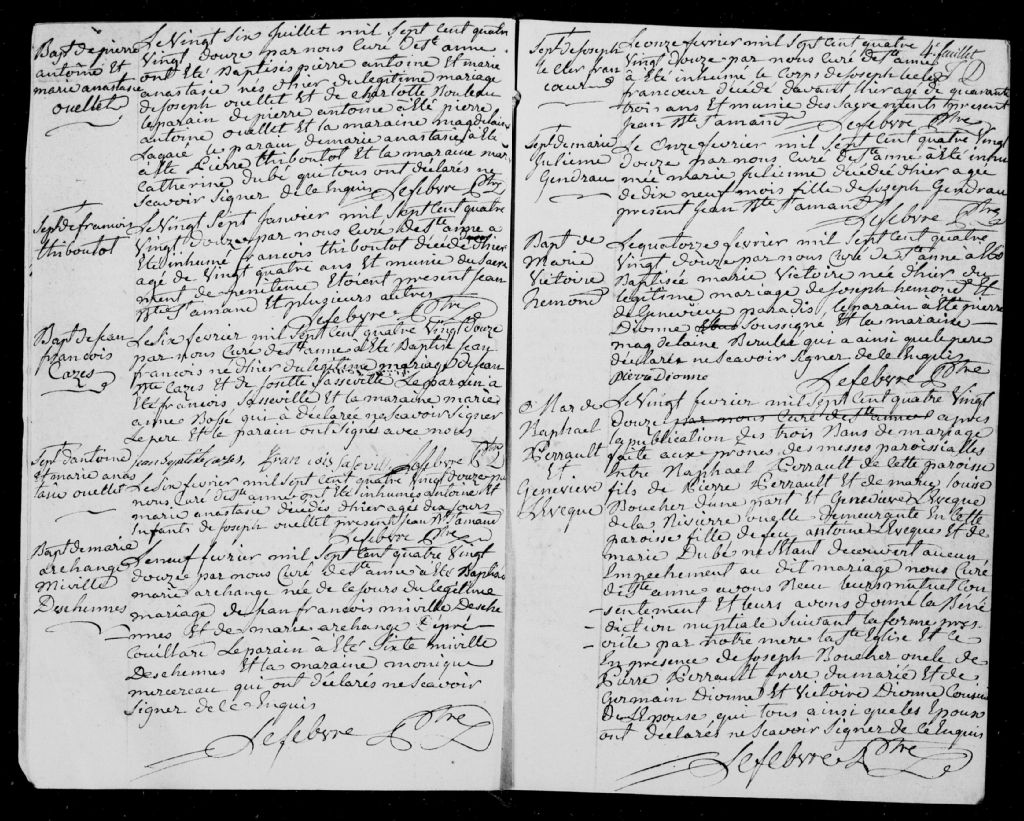 Bapt de pierre
antoine Et
marie anastasie
ouellet
Le Vingt six Juillet mil Sept Cent quatre
Vingt douze par nous Curé de Ste anne
ont Eté Baptisés pierre antoine Et marie
anastasie nés d'hier du legitime mariage
de Joseph ouellet Et de Charlotte
le parain de pierre antoine a Eté pierre
antoine ouellet Et la maraine magdelaine
Lagacé le parain de marie anastasie a Eté
Pierre thiboutot Et la maraine marie
Catherine dubé qui tous ont déclarés ne
Scavoir Signer de ce Enquis Lefebvre Ptre
Sept de francois
thiboutot
Le Vingt Sept Janvier mil Sept Cent quatre
Vingt douze par nous Curé de Ste anne a
Eté inhumé francois thiboutot décédé d'hier
agé de Vingt quatre ans Et munie du Sacre
ment de penitence Etoient present Jean
Bte St amand Et plusieurs autres
Lefebvre Ptre
Bapt de Jean
francois
Cazes
Le Six fevrier mil Sept Cent quatre Vingt douze
par nous Curé de Ste anne a Eté Baptisé Jean
francois né d'hier du legitime mariage de Jean
Bte Cazes Et de Josette Sasseville Le parain a
Eté francois Sasseville Et la maraine marie
anne Bossé qui a déclarée ne Scavoir Signer
Le pere Et le parain ont Signés avec nous
jean baptiste cazes, francois Lefebvre Ptre
Sept d'antoine
et marie anas
tasie ouellet
Le Six fevrier mil Sept Cent quatre Vingt douze par
nous Curé de Ste anne ont Eté inhumés antoine Et
marie anastasie décédés d'hier agés de jours
Enfants de Joseph ouellet present Jean Bte St amand
Lefebvre Ptre
Bapt de marie
archange
Miville
Deschennes
Le neuf fevrier mil Sept Cent quatre Vingt
douze par nous Curé de Ste anne a Eté Baptisée
marie archange née de ce jour du legitime
mariage de Jean francois miville desche
nnes Et de marie archange
Couillard Le parain a Eté Sixte miville
Deschennes Et la maraine monique
mercereau qui ont déclarés ne Scavoir
Signer de ce Enquis
Lefebvre Ptre
4e feuillet
Sept de Joseph
le Cler fran
coeur
Le onze fevrier mil Sept Cent quatre
Vingt douze par nous Curé de Ste anne
a Eté inhumé le Corps de Joseph leclerc
francoeur décédé d'avant hier agé de quarante
trois ans Et munie des Sacrements present
Jean Bte St amand Lefebvre Ptre
Sept de marie
Julienne
Gendrau
Le Onze fevrier mil Sept Cent quatre Vingt
douze par nous Curé de Ste anne a Eté inhu
mée marie Julienne décédée d'hier agée
de dix neuf mois fille de Joseph Gendrau
present Jean Bte St amand
Lefebvre Ptre
Bapt de
Marie
Victoire
hemond
Le quatorze fevrier mil Sept Cent quatre
Vingt douze par nous Curé de Ste anne a Eté
Baptisée marie Victoire née d'hier du
legitime mariage de Joseph hemond Et
de Genevieve paradis, le parain a Eté pierre
Dionne Soussigné Et la maraine
magdelaine Berubé qui a ainsi que le pere
déclarés ne Scavoir Signer de ce Enquis
Pierre Dionne Lefebvre Ptre
Mar de
Raphael
Perrault
Et
Genevieve
Leveque
Le Vingt fevrier mil Sept Cent quatre Vingt
douze par nous Curé de Ste anne apres
la publication des trois Bans de mariage
faite aux prones des messes paroissialles
Entre Raphael Perrault de cette paroisse
fils de Pierre Perrault Et de marie louise
Boucher d'une part Et Genevieve Leveque
de la Riviere ouelle demeurante En cette
paroisse fille de feu antoine Leveque Et de
marie Dubé ne s'Etant decouvert aucun
Empechement au dit mariage nous Curé
de Ste anne avons Recu leur mutuel Con
sentement Et leurs avons donné la Bene
diction nuptiale Suivant la forme pres
crite par notre mere la Ste Eglise Et ce
En presence de Joseph Boucher oncle de
Pierre Perrault frere du marié Et de
Germain Dionne Et Victoire Dionne Cousin
De l'Epouse, qui tous ainsi que les Epoux
ont déclarés ne Scavoir Signer de ce Enquis
Lefebvre Ptre